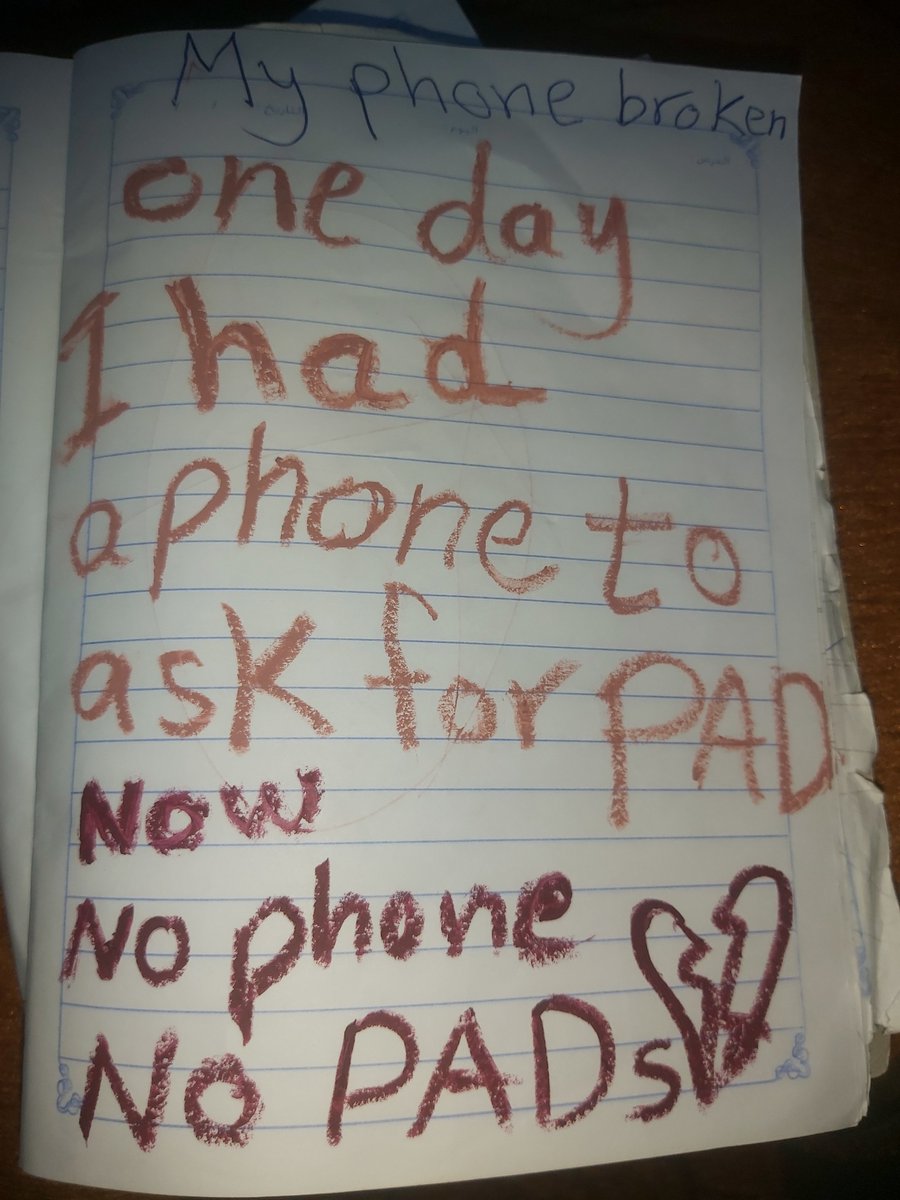 My phone broken
one day
I had
a phone to
ask for PAD
Now
No phone
No PADs